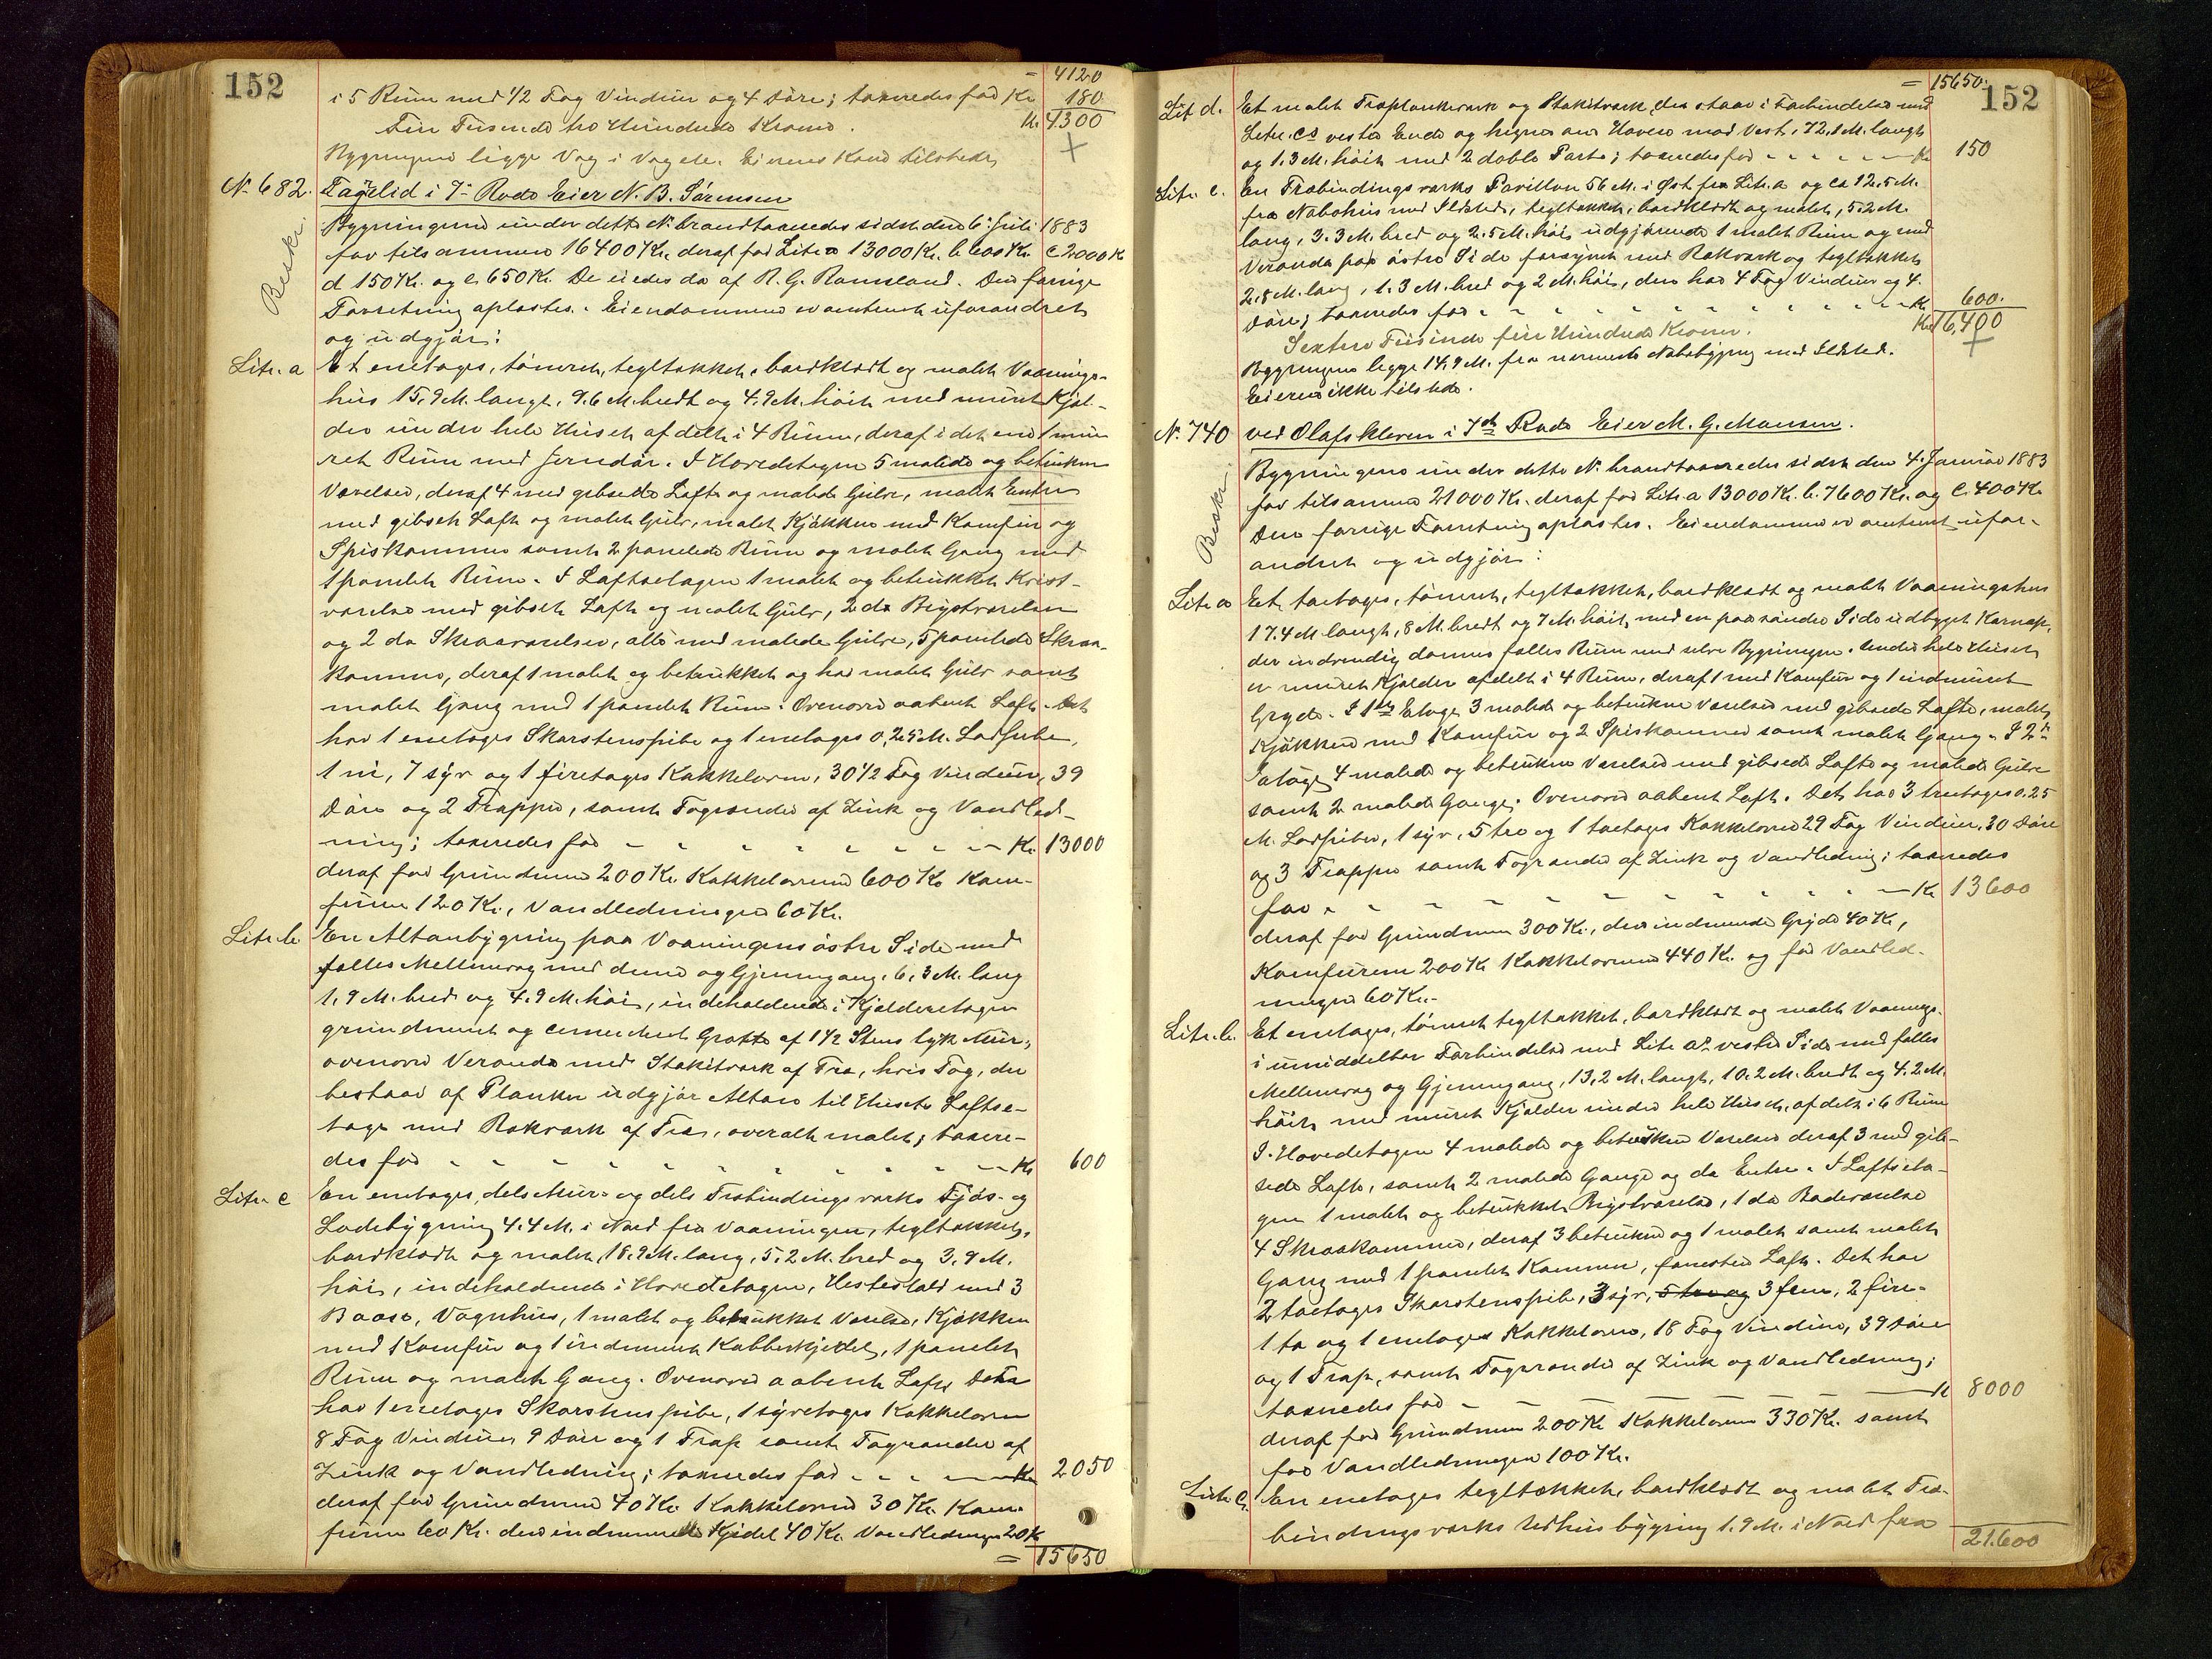 152
= 4120
i 5 Rum med 1/2 Fag Vinduer og 4 Döre; taxeredes for Kr. 180
Fire Tusende tre Hundrede Kroner. Kr. 4300
Bygningerne ligge Væg i Væg etc. Eierens Kone tilstede.
N. 682. Fagerlid i 7de Rode Eier N. B. Sörensen
Beskr.
Bygningerne under dette No brandtaxeredes sidst den 6. Juli 1883
for tilsammen 16400 Kr. deraf for Litr. a 13000 Kr. b. 600 Kr. c 2000 Kr
d 150 Kr. og e. 650 Kr. De eiedes da af R. G. Ramsland. Den forrige
Forretning oplæstes. Eiendommen er omtrent uforandret
og udgjör:
Litr. a Et enetages, tömret, tegltækket, bordklædt og malet Vaanings-
hus 15,9 M. langt, 9.6 M. bredt og 4.9 M. höit med muret Kjæl-
der under hele Huset afdelt i 4 Rum, deraf i det ene 1 mu-
ret Rum med Jerndör. I Hovedetagen 5 malede og betrukne
Værelser, deraf 4 med gibsede Lofte og malede Gulve, malet Entre
med gibset Loft og malet Gulv, malet Kjökken med Komfur og
Spiskammer samt 2 panelede Rum og malet Gang med
1 panelet Rum. I Loftsetagen 1 malet og betrukket Kvist-
værelse med gibset Loft og malet Gulv, 2 do Brystværelser
og 2 do Skraaværelser, alle med malede Gulve, 5 panelede Skraa-
kammer, deraf 1 malet og betrukket og har malet Gulv samt
malet Gang med 1 panelet Rum. Ovenover aabent Loft. Det
har 1 enetages Skorstenspibe og 1 enetages 0,25 M. Lodpibe,
1 ni, 7 syv og 1 firetages Kakkelovne, 30 1/2 Fag Vinduer, 39
Döre og 2 Trapper, samt Tagrender af Zink og Vandled-
ning; taxeredes for - - - - - Kr. 13000
deraf for Grundmur 200 Kr. Kakkelovnene 600 Kr Kom-
furen 120 Kr., Vandledningen 60 Kr.
Litr. b En Altanbygning paa Vaaningens östre Side med
fælles Mellemvæg med denne og Gjennemgang, 6,3 M. lang
1,9 M. bred og 4.9 M. höi, indeholdende i Kjælderetagen
grundmuret og cementeret Grotte af 1 1/2 Stens tyk Mur,
ovenover Veranda med Stakitværk af Træ, hvis Tag, der
bestaar af Planker udgjör Altan til Husets Loftse-
tage med Rækværk af Træ, overalt malet; taxere-
des for - - - - - Kr. 600
Litr. c En enetages, dels Mur- og dels Træbindingsværks Fjös- og
Ladebygning 4.4 M. i Nord fra Vaaningen, tegltækket,
bordklædt og malet, 18,9 M. lang, 5,2 M. bred og 3,9 M.
höi, indeholdende i Hovedetagen, Hestestald med 3
Baase, Vognhus, 1 malet og betrukket Værelse, Kjökken
med Komfur og 1 indmuret Kobberkjedel, 1 panelet
Rum og malet Gang. Ovenover aabent Loft. Dette
har 1 enetages Skorstenspibe, 1 syvetages Kakkelovn
8 Fag Vinduer 9 Döre og 1 Trap samt Tagrender af
Zink og Vandledning; taxeredes for - - - Kr 2050
deraf for Grundmur 40 Kr. Kakkelovnen 30 Kr. Kom-
furen 60 Kr. den indmurede Kjedel 40 Kr. Vandledningen 20 Kr
= 15650
152
= 15650.
Litr d. Et malet Træplankeværk og Stakitværk, der staar i Forbindelse med
Litr. cs vestre Ende og hegner om Haven mod Vest, 72,1 M. langt
og 1.3 M. höit med 2 doble Porte; taxeredes for - - - - Kr. 150
Litr. e. En Træbindingsværks Pavillon 56 M. i Öst fra Litr. a og ca 12.5 M.
fra Nabohus med Ildsted, tegltækket, bordklædt og malet, 5.2 M.
lang, 3.3 M. bred og 2.5 M. höi udgjörende 1 malet Rum og med
Veranda paa östre Side forsynet med Rækværk og tegltækket
2.8 M. lang, 1.3 M. bred og 2 M. höi, den har 4 Fag Vinduer og 4
Döre; taxeredes for - - - - Kr. 600.
Sexten Tusinde fire Hundrede Kroner. Kr. 16,400
Bygningerne ligge 14,9 M. fra nærmeste Nabobygning med Ildsted.
Eieren ikke tilstede.
N. 740 ved Olafskleven i 7de Rode Eier M. G. Monsen.
Beskr.
Bygningerne under dette N. brandtaxeredes sidst den 4. Januar 1883
for tilsammen 21000 Kr. deraf for Litr. a 13000 Kr. b. 7600 Kr. og c. 400 Kr
Den forrige Forretning oplæstes. Eiendommen er omtrent ufor-
andret og udgjör:
Litr a Et toetages, tömret, tegltækket, bordklædt og malet Vaaningshus
17.4 M. langt, 8 M. bredt og 7 M. höit, med en paa söndre Side udbygget Karnap,
der indvendig danner fælles Rum med selve Bygningen. Under hele Huset
er muret Kjælder afdelt i 4 Rum, deraf 1 med Komfur og 1 indmuret
Gryde. I 1ste Etage 3 malede og betrukne Værelser med gibsede Lofte, malet
Kjökken med Komfur og 2 Spiskammer samt malet Gang. I 2den
Etage 4 malede og betrukne Værelser med gibsede Lofte og malede Gulve
samt 2 malede Gange. Ovenover aabent Loft. Det har 3 treetages 0.25
M. Lodpiber, 1 syv, 5 tre og 1 toetages Kakkelovne 29 Fag Vinduer, 30 Döre
og 3 Trapper samt Tagrender af Zink og Vandledning; taxeredes
for - - - - - Kr 13600
deraf for Grundmur 300 Kr., den indmurede Gryde 40 Kr,
Komfurerne 200 Kr Kakkelovnene 440 Kr. og for Vandled-
ningen 60 Kr.-
Litr. b. Et enetages, tömret tegltækket, bordklædt og malet Vaanings.
i umiddelbar Forbindelse med Litr. a's vestre Side med fælles
Mellemvæg og Gjennemgang, 13,2 M. langt, 10.2 M. bredt og 4.2 M.
höit, med muret Kjælder under hele Huset, afdelt i 6 Rum
I Hovedetagen 4 malede og betrukne Værelser deraf 3 med gib-
sede Lofte, samt 2 malede Gange og do Entre. I Loftseta-
gen 1 malet og betrukket Brystværelse, 1 do Badeværelse
4 Skraakammer, deraf 3 betrukne og 1 malet samt malet
Gang med 1 panelet Kammer, forresten Loft. Det har
2 toetages Skorstenspibe, 3 syv, 5 tre og 3 fem, 2 fire-
1 to og 1 enetages Kakkelovne, 18 Fag Vinduer, 39 Döre
og 1 Trap, samt Tagrender af Zink og Vandledning;
taxeredes for - - - - Kr 8000
deraf for Grundmur 200 Kr Kakkelovnene 330 Kr. samt
for Vandledningen 100 Kr.
Litr. c. En enetages tegltækket, bordklædt og malet Træ-
bindingsværks Udhusbygning 1.9 M. i Nord fra
21.600